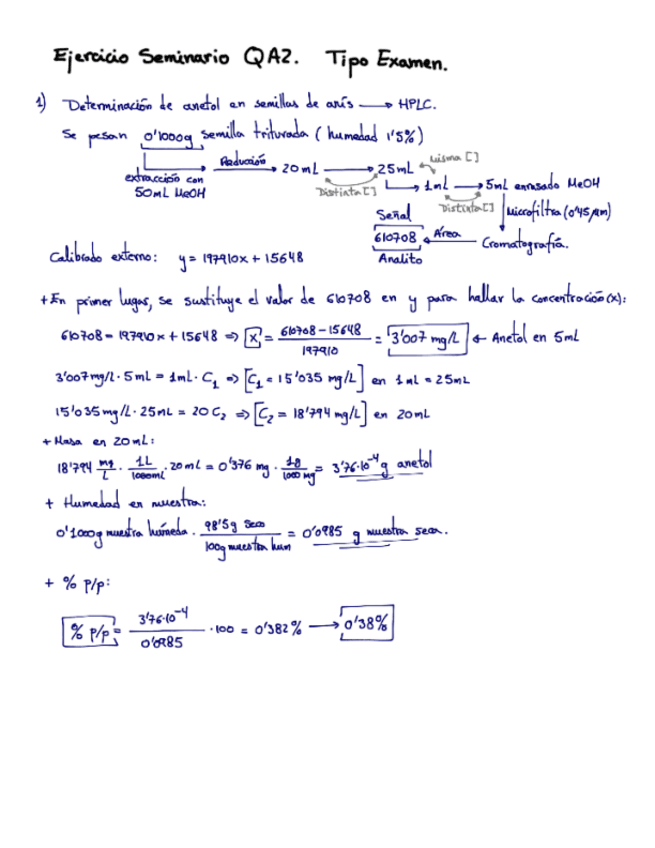 Ejercicio Seminario QA2. Tipo Examen.
1) Determinación de anetol en semillas de anís → HPLC.
Se pesan 0'1000g semilla triturada (humedad 1'5%)
extracción con 50mL MeOH Reducción → 20mL → 25mL misma []
Distinta [] → 1mL → 5mL enrasado MeOH
Distinta [] Microfiltra (0'45 µm)
Señal 610708 Analito ← Área Cromatografía.
Calibrado externo: y = 197910x + 15648
+ En primer lugar, se sustituye el valor de 610708 en y para hallar la concentración (x):
610708 = 197910x + 15648 ⇒ x = (610708 - 15648) / 197910 = 3'007 mg/L ← Anetol en 5mL
3'007 mg/L · 5mL = 1mL · C₁ ⇒ [C₁ = 15'035 mg/L] en 1mL = 25mL
15'035 mg/L · 25mL = 20 C₂ ⇒ [C₂ = 18'794 mg/L] en 20mL
+ Masa en 20mL:
18'794 mg/L · 1L/1000mL · 20mL = 0'376 mg · 1g/1000mg = 3'76·10⁻⁴ g anetol
+ Humedad en muestra:
0'1000g muestra húmeda · 98'5g seco / 100g muestra hum = 0'0985 g muestra seca.
+ % p/p:
% p/p = 3'76·10⁻⁴ / 0'0985 · 100 = 0'382% → 0'38%